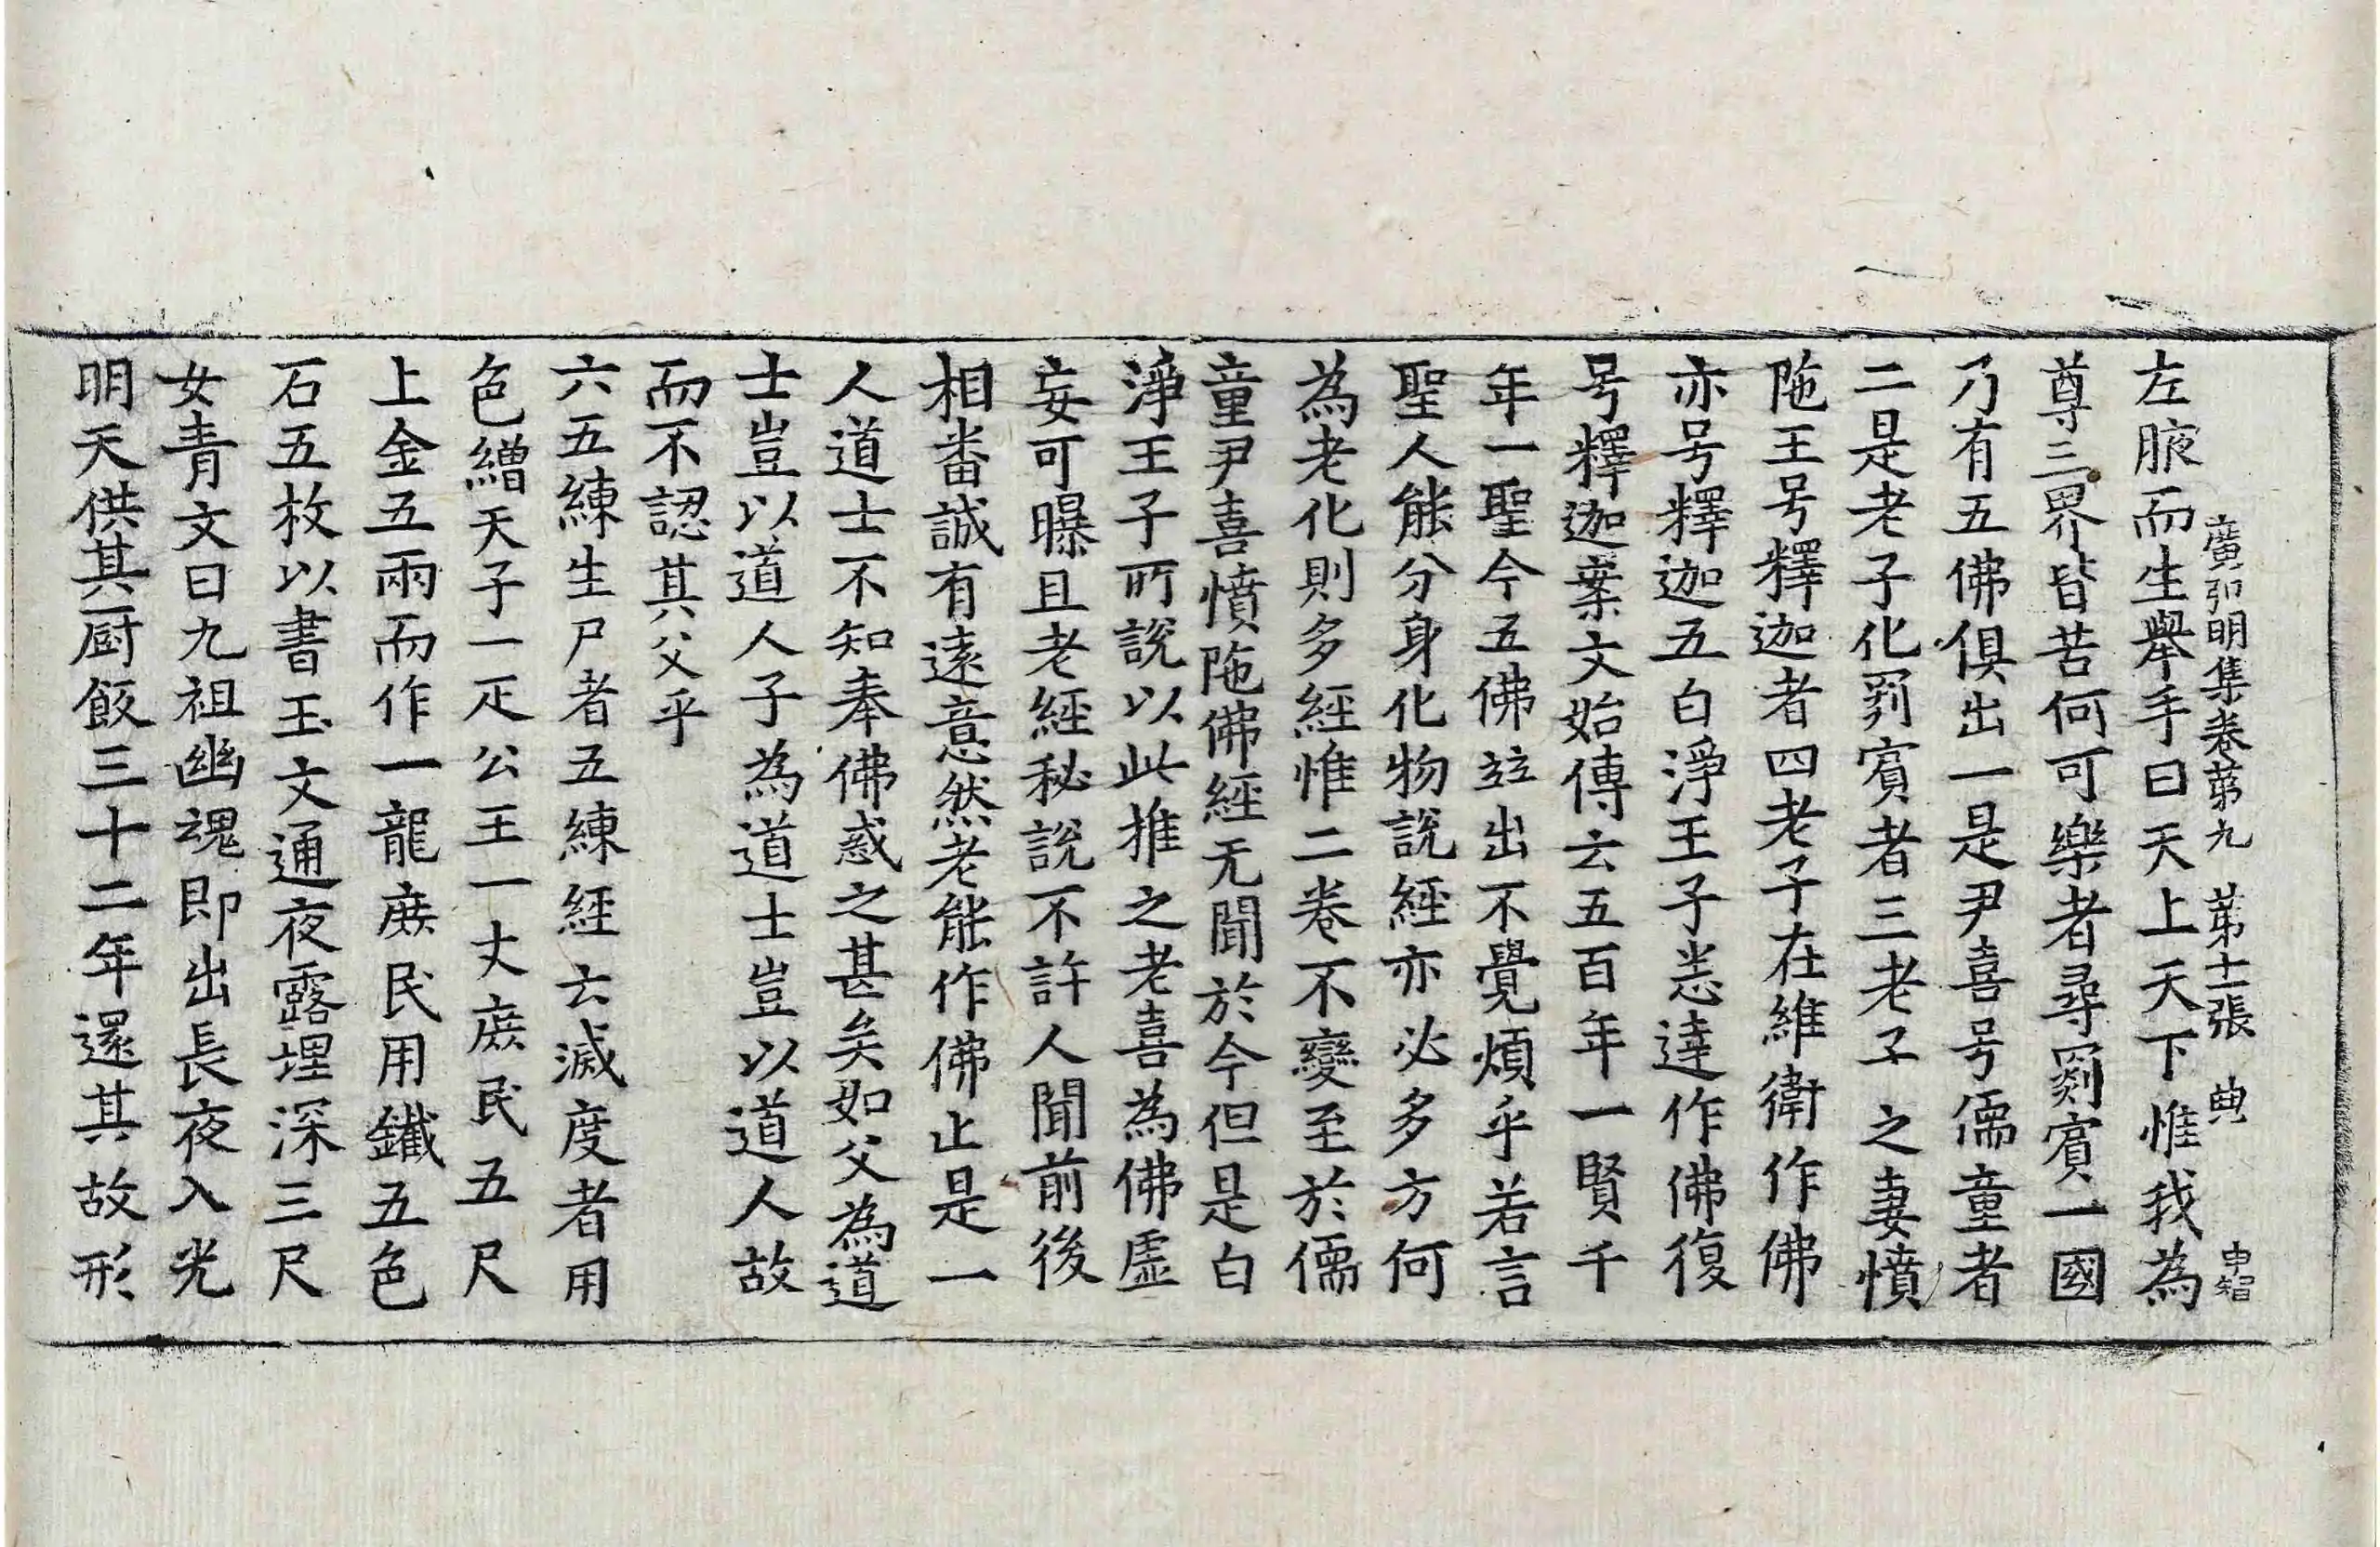 廣弘明集卷苐九　苐十二張　典　申智
左腋而生舉手曰天上天下惟我為
尊三界皆苦何可樂者尋罽賓一國
乃有五佛俱出一是尹喜号儒童者
二是老子化罽賓者三老子之妻憤
陁王号釋迦者四老子在維衛作佛
亦号釋迦五白淨王子悉達作佛復
号釋迦案文始傳云五百年一賢千
年一聖今五佛並出不覺煩乎若言
聖人能分身化物說經亦必多方何
為老化則多經惟二卷不變至於儒
童尹喜憤陁佛經无聞於今但是白
淨王子所說以此推之老喜為佛虛
妄可曝且老經秘說不許人聞前後
相番誠有遠意然老能作佛止是一
人道士不知奉佛惑之甚矣如父為道
士豈以道人子為道士豈以道人故
而不認其父乎
六五練生尸者五練經云滅度者用
色繒天子一疋公王一丈庶民五尺
上金五兩而作一龍庶民用鐵五色
石五枚以書玉文通夜露埋深三尺
女青文曰九祖幽魂即出長夜入光
明天供其厨飯三十二年還其故形